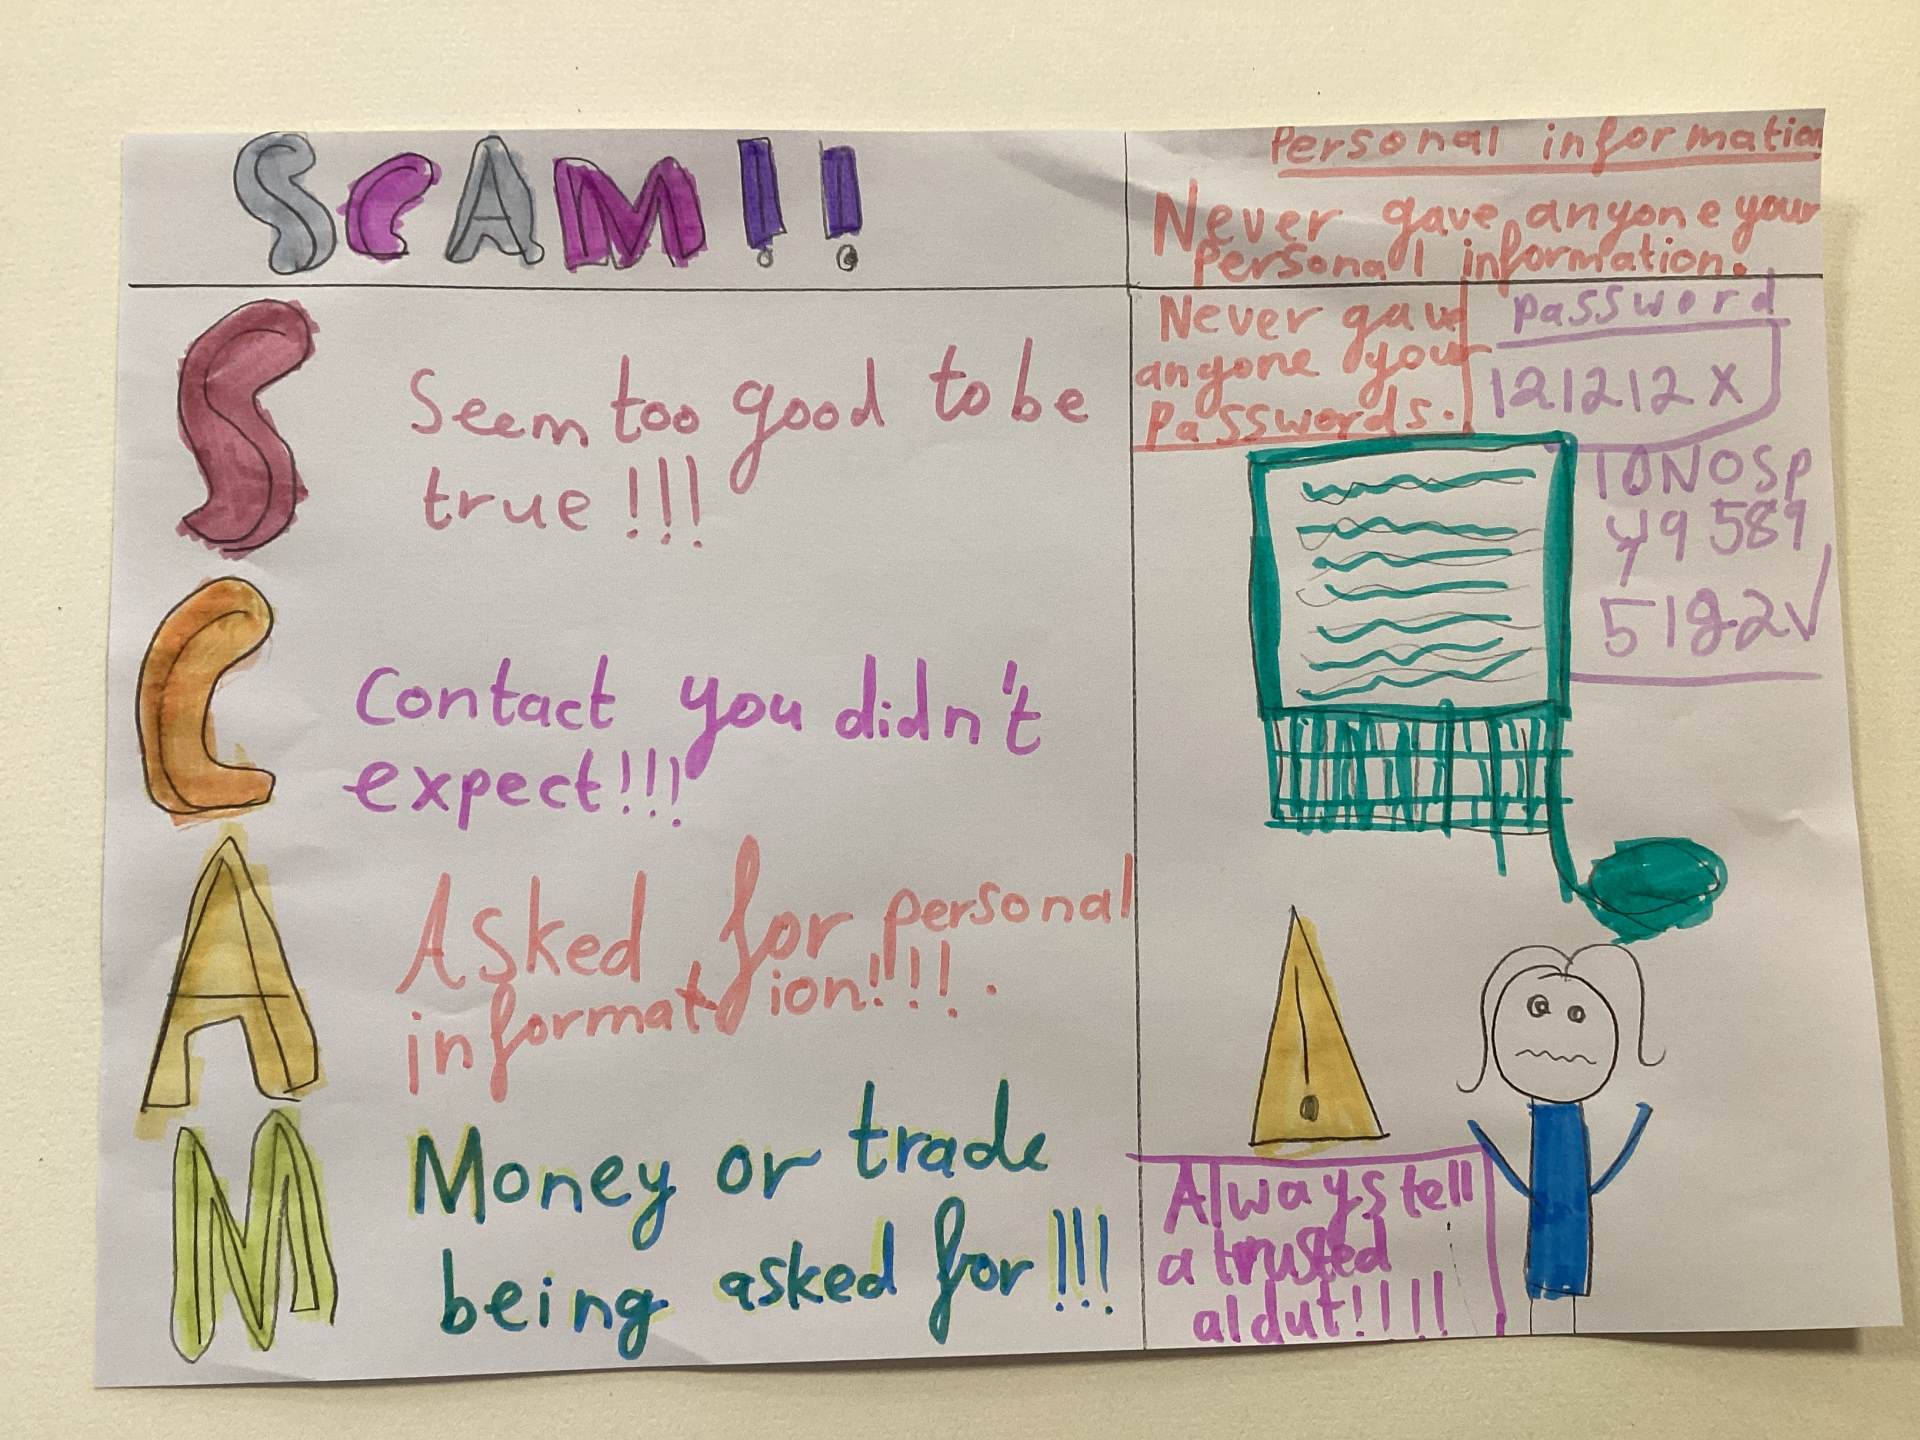 SCAM!!
S
Seem too good to be
true!!!
C
Contact you didn't
expect!!!
A
Asked for personal
information!!!.
M
Money or trade
being asked for!!!
Personal information
Never gave anyone your
Personal information.
Never gave
anyone your
Passwords.
password
121212X
10NOSP
49589
5182✓
Always tell
a trusted
aldut!!!!